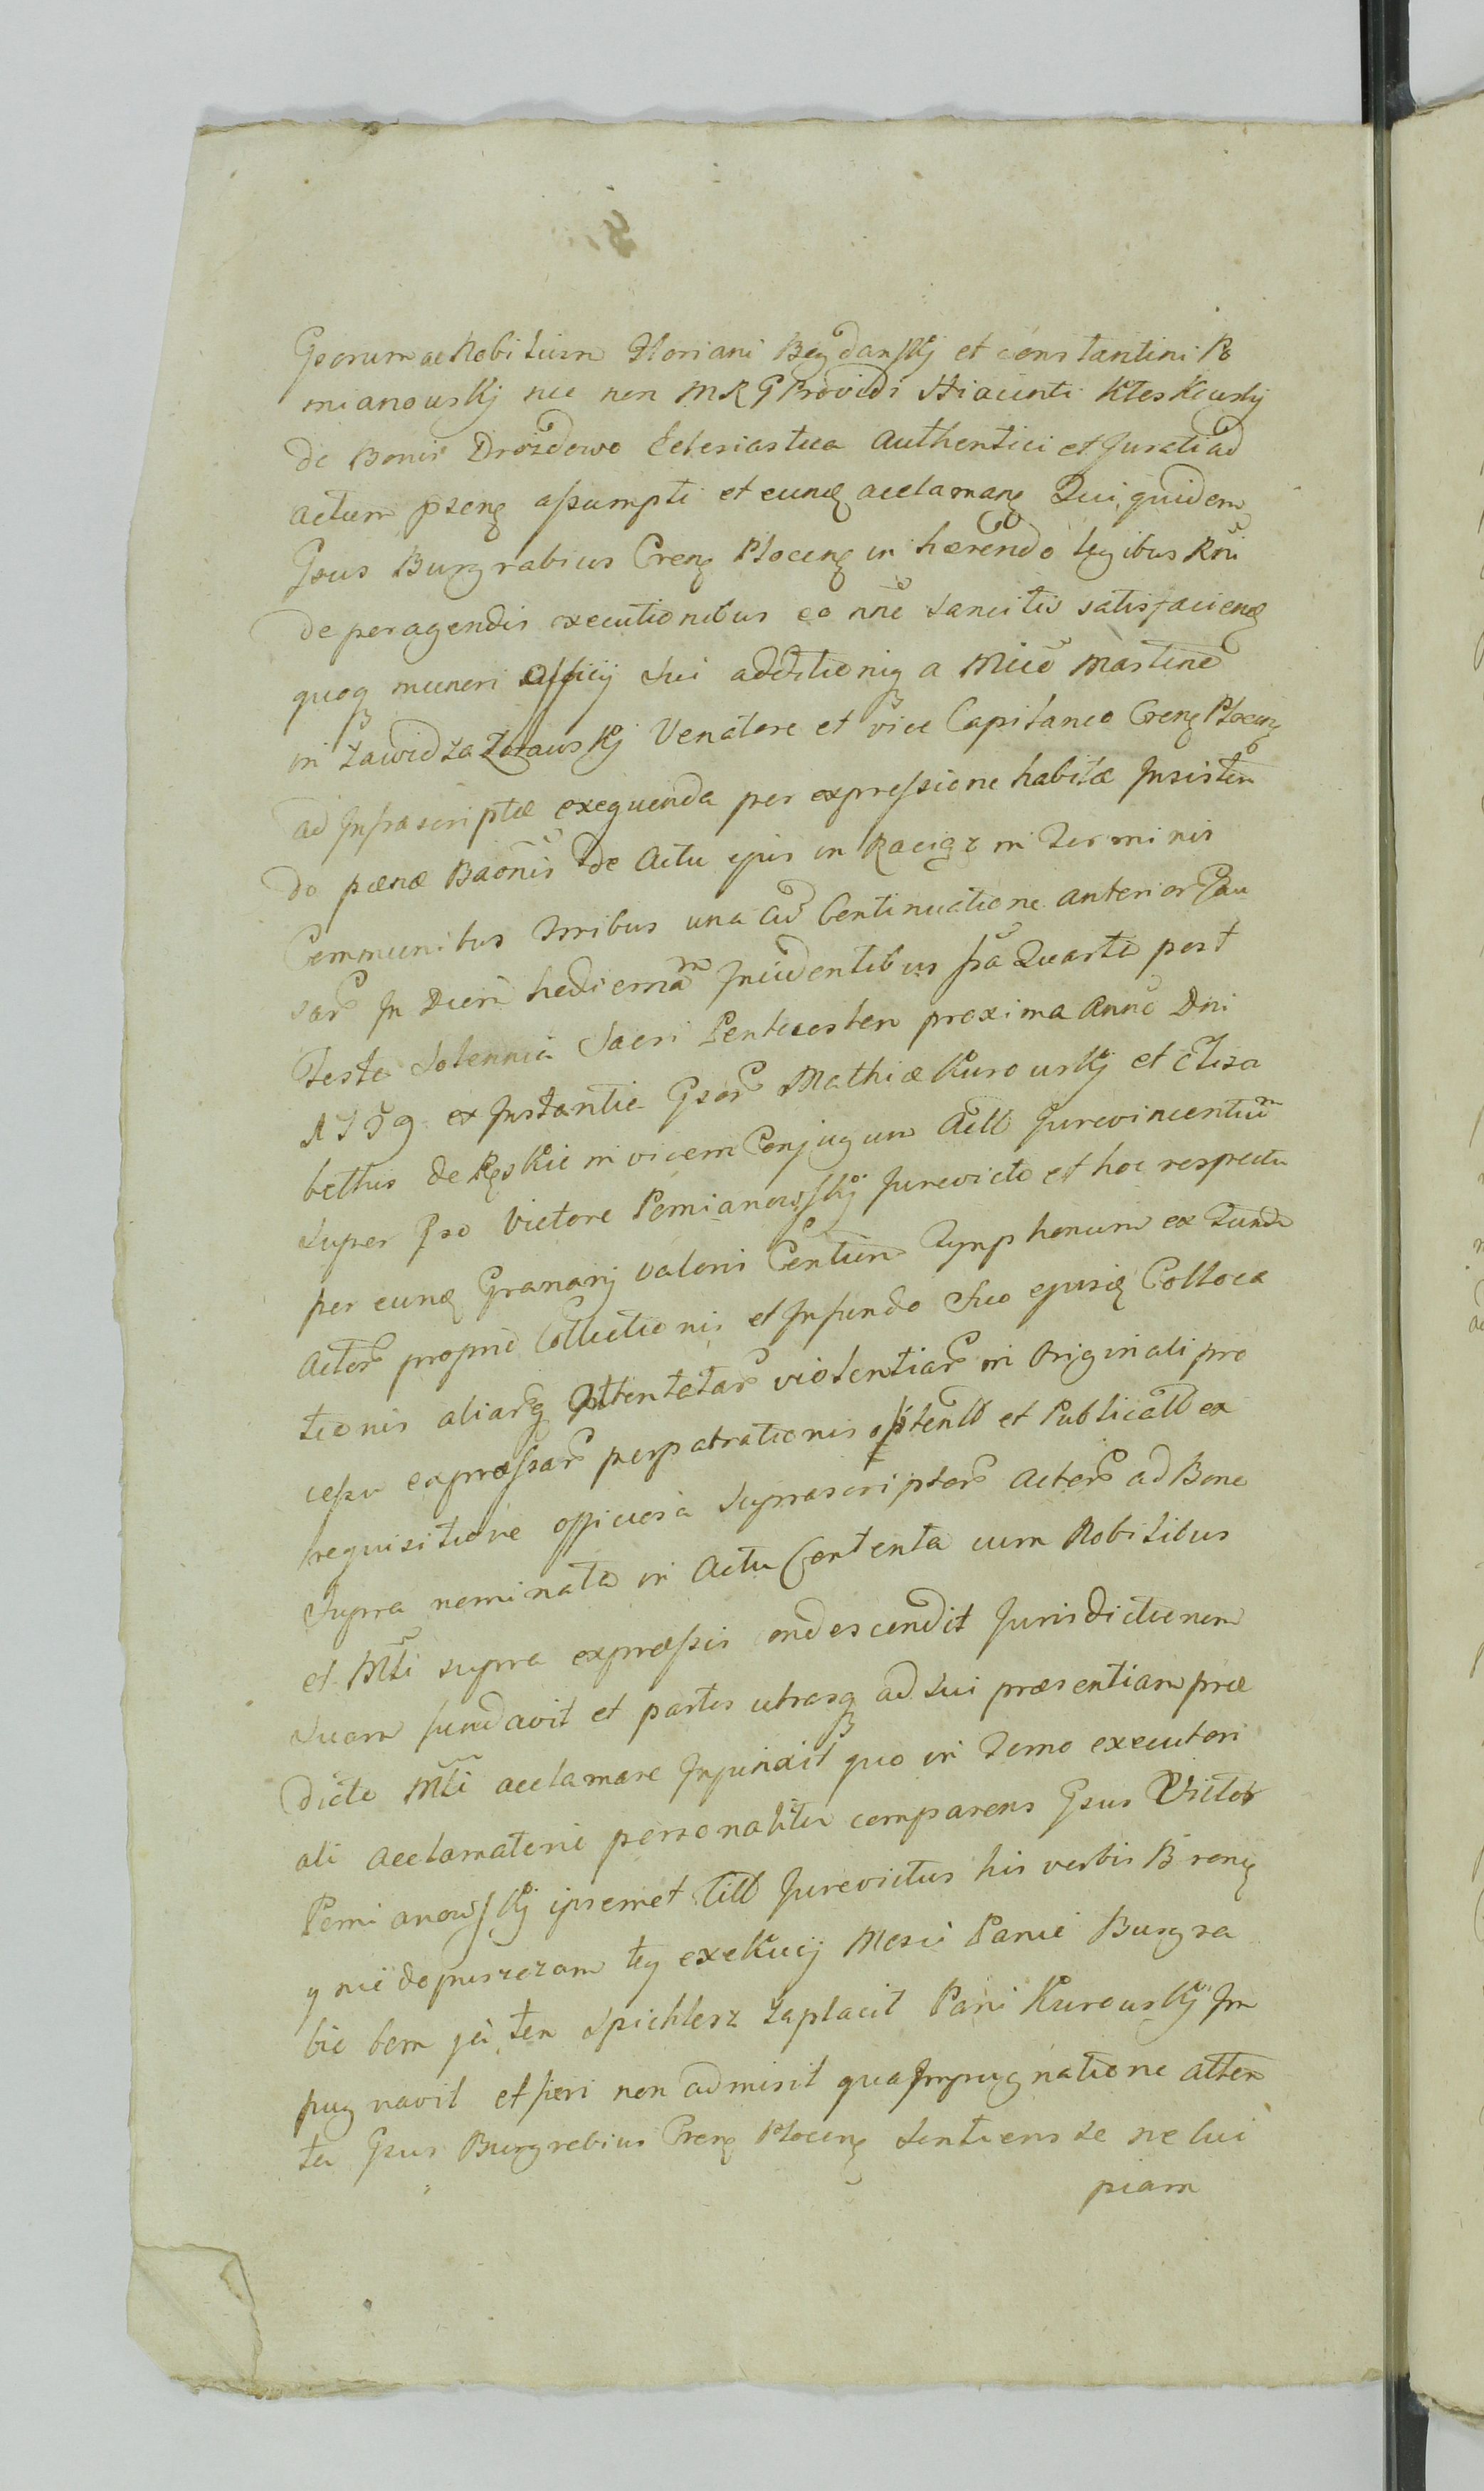 Gsorum ac Nobilium Floriani Bogdanskj et Constantini Po
mianowskj nec non MRG Providi Hiacinti Kleskowskj
de Bonis Drozdowo Eclesiastica Authentici et Jurati ad
actum pseng assumpti et eund acclamang Qui quidem
Gsus Burgrabius Creng Ploceng in hærendo legibus Rni
de peragendis executionibus eo nne Sancitis satisfaciend
quoq muneri Officij Sui additionig a Mfico Martino
in Zawidza Zorawskj Venatore et vice Capitaneo Creng Ploceng
ad Infrascriptæ exequenda per expressione habitæ Insisten
do pænæ Baonis de Actu ejus in Raciąz in Terminis
Communibus Trribus una cū Continuatione anterior Cau
sar In Diem hodiernam Incidentibus fra Quarta post
Festa Solennia Sacri Pentecosten proxima Anno Dni
1759 ex Instantia Gsor Mathiæ Kurowskj et Eliza
bethis de Ręskie invicem Conjugum Actt Jurevincentium
Super Gso Victore Pomianowskj Jurevicto et hoc respectu
per eund Granarij valoris Centum Tynphonum ex Fundo
Actor proprio Collectionis et In fundo Suo ejusd Colloca
tionis aliarq Attentatar violentiar in Originali pro
cessu expressar perpatrationis ostentt et Publicatt ex
requisitione officiosa Suprascriptor Actor ad Bona
Supra nominata in Actu Contenta cum Nobilibus
et Mtli supra expressis condescendit Jurisdictionem
Suam fundavit et partes utrasq ad Sui præsentiam præ
dicto Mtli acclamare Injunxit quo in Termo executori
ali acclamatorie personaliter comparens Gsus Victor
Pomianowskj ipsemet Citt Jurevictus his verbis Bronię
y nie dopuszczam tey exekucij Mosci Panie Burgra
bie bom ja ten Spichlerz zaplacił Pani Kurowskj Im
pugnavit et fieri non admisit qua Impugnatione atten
ta Gsus Burgrabius Creng Ploceng Sentiens se ne lui
piam